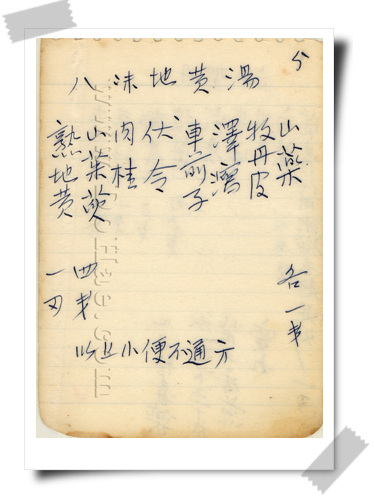 5
八味地黄湯
熟地黄 一刃
山茱萸 四才
肉桂
伏令
車前子
澤瀉
牧丹皮
山藥 各一才
以上小便不通方